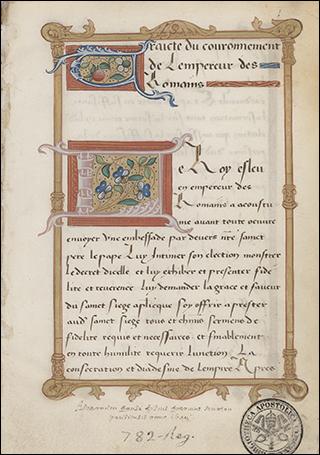 Traicte du couronnement
de Lempereur des
Romains
Le Roy esleu
en empereur des
Romains a acoustu
me auant toute oeuure
enuoyer vne embessade par deuers nr̄e sainct
pere le pape Luy Intimer son election monstrer
le decret dicelle et luy exhiber et presenter fide
lite et reuerence Luy demander la grace et faueur
du sainct siege aplicque soy offrir a prester
aud sainct siege tous et chūns sermens de
fidelite requis et necessaires et finablement
en toute humilite requerir Lunction La
consecration et diadesme de lempire Apres
782-Reg.
BIBLIOTHECA APOSTOLICA